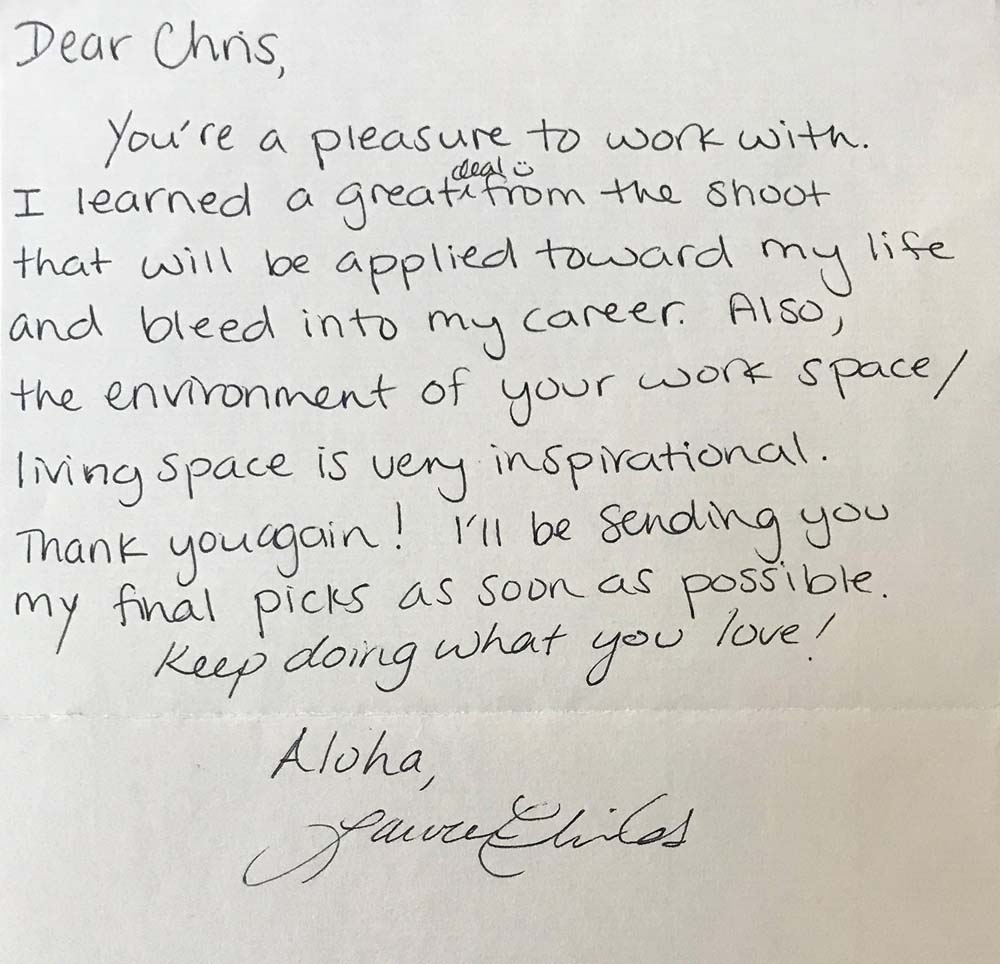 Dear Chris,
You're a pleasure to work with.
deal
I learned a great from the shoot
that will be applied toward my life
and bleed into my career. Also,
the environment of your work space/
living space is very inspirational.
Thank you again! I'll be sending you
my final picks as soon as possible.
Keep doing what you love!
Aloha,